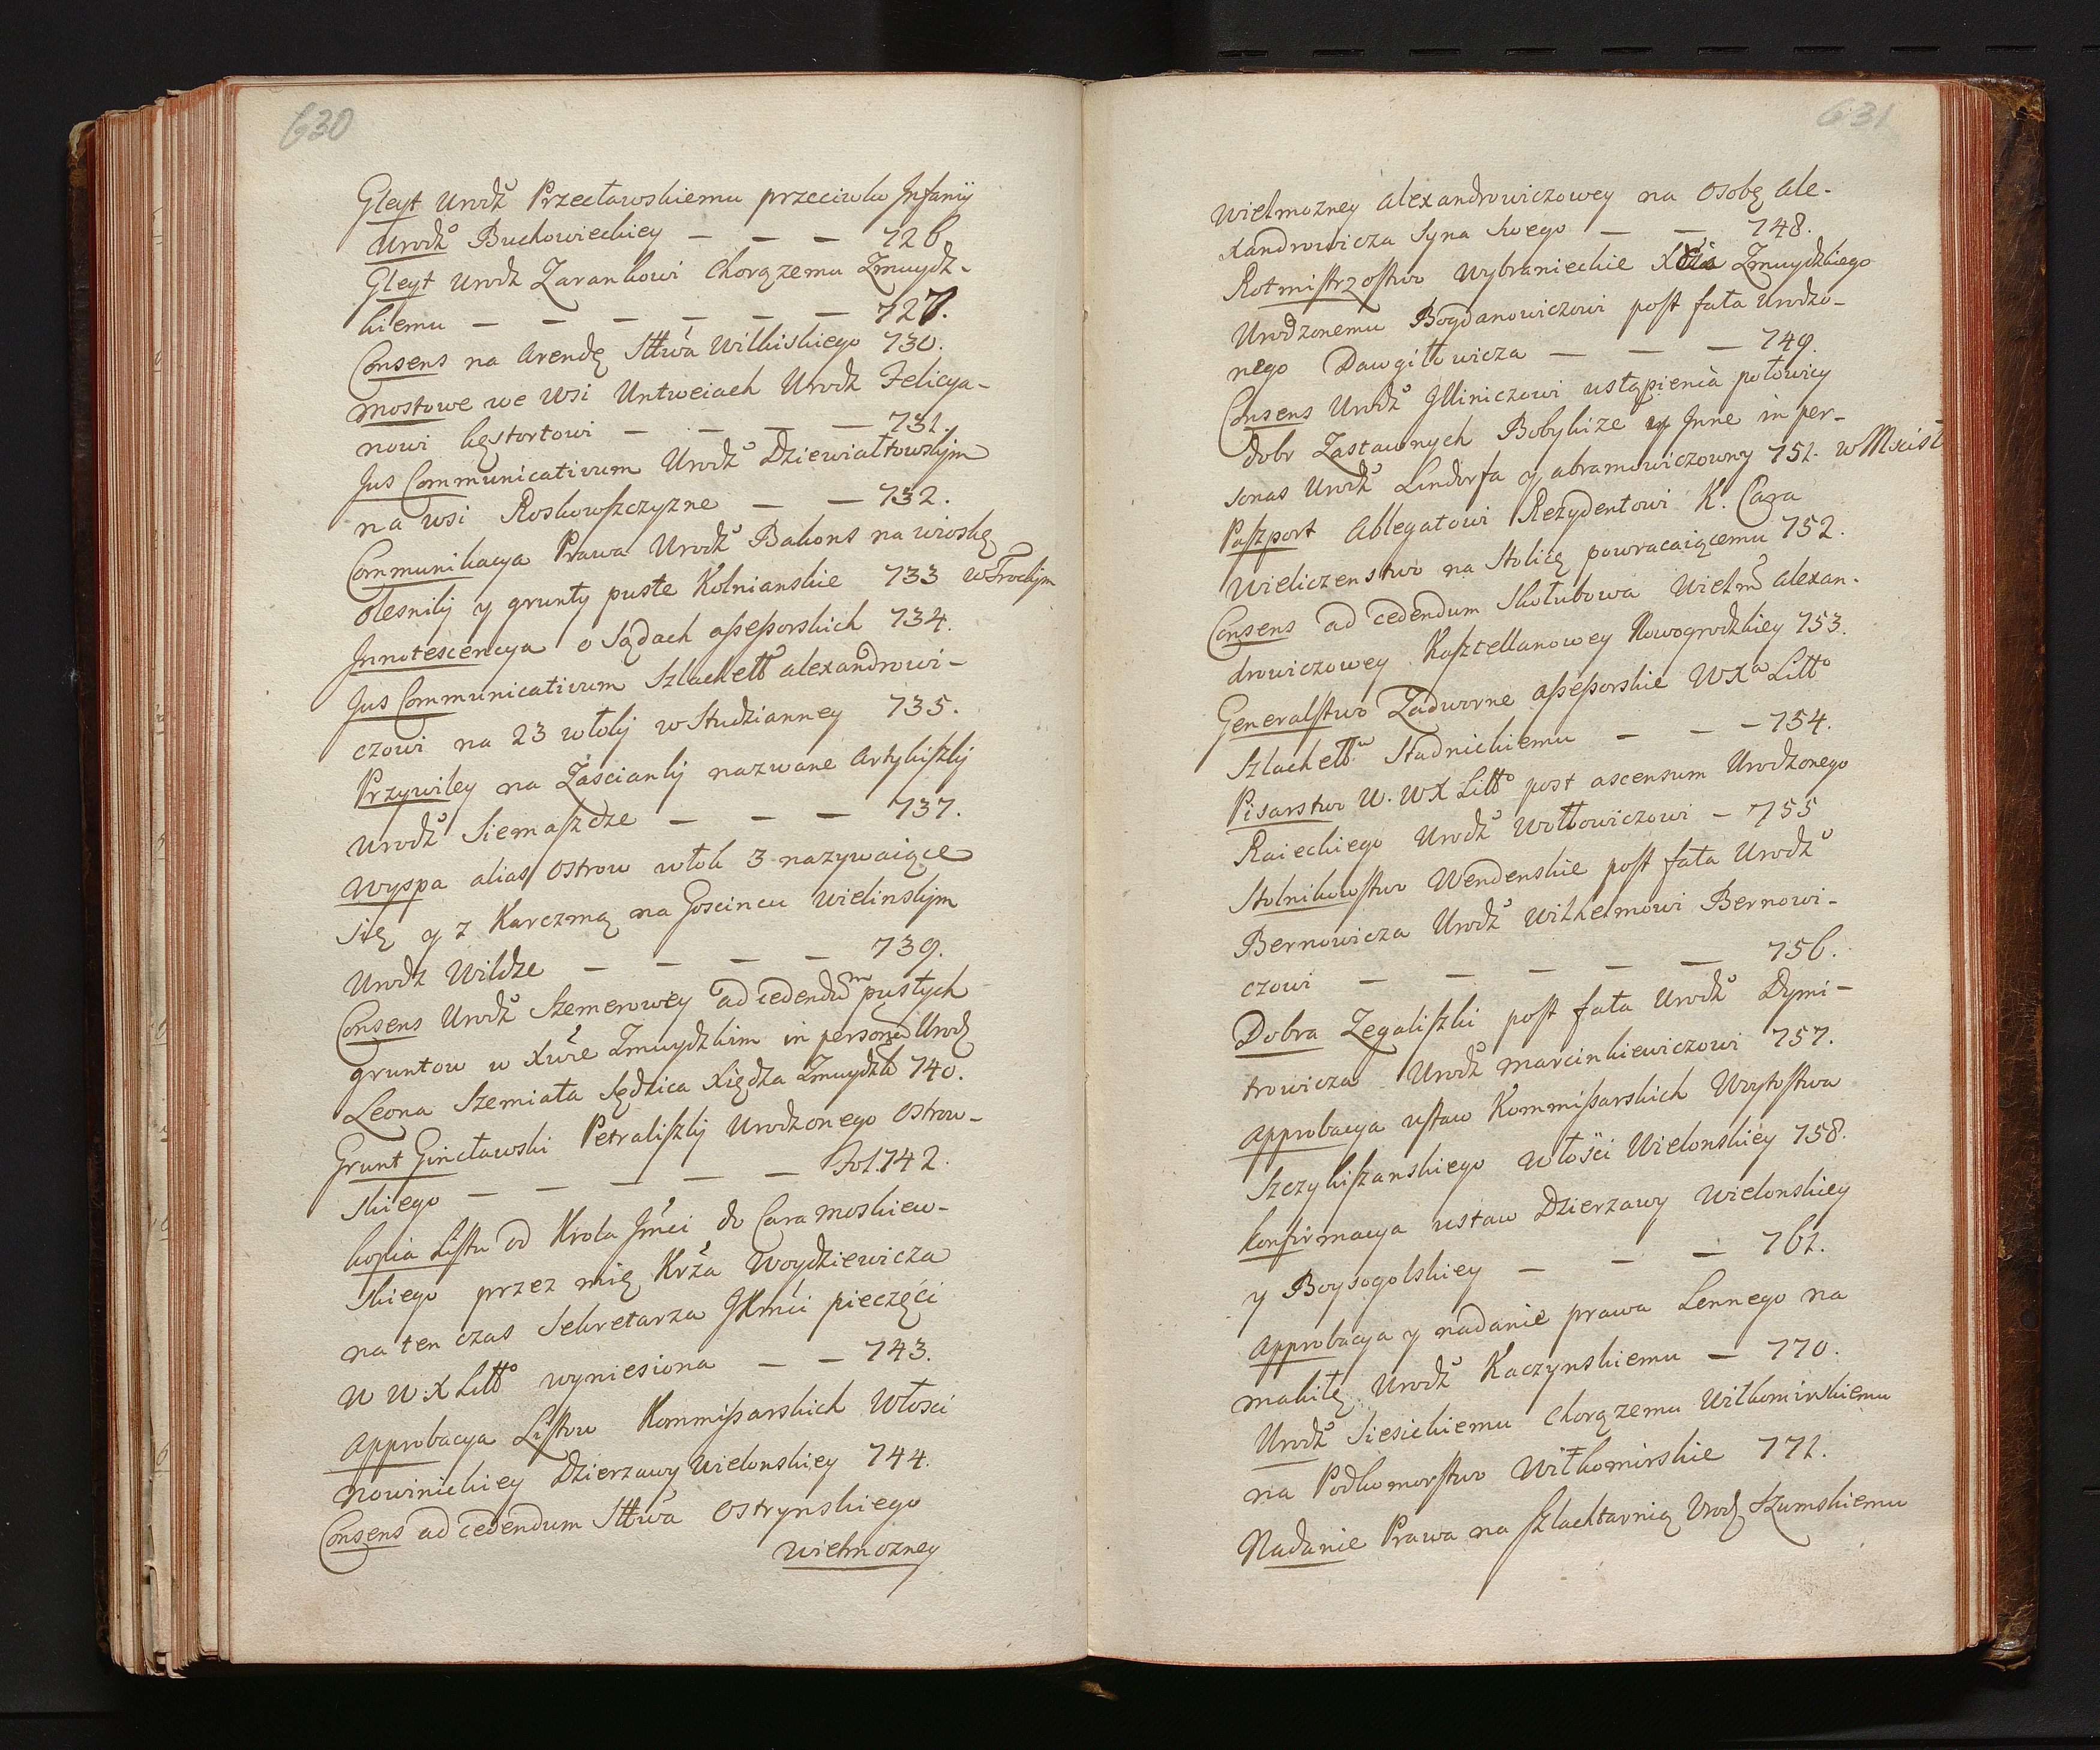 630
Gleyt Urodź Przecławskiemu przeciwko Infamij
Urodź Buchowieckiey — — — 726.
Gleyt Urodz Zarankowi Chorązemu Zmuydz-
kiemu — — — — — — 727.
Consens na Arendę Sttwa Wilkiskiego 730.
Mostowe we Wsi Untweciach Urodz Felicya-
nowi Kęstortowi — — — — 731.
Jus Communicativum Urodź Dziewiałtowskim
na wsi Roskowszczyzne — — 732.
Communikacya Prawa Urodź Bakons na wioskę
Olesniki y grunty puste Kolnianskie 733 w Trockim
Innotescencya o Sądach assessorskich 734.
Jus Communicativum Szlachett alexandrowi-
czowi na 23 włoki w Studzianney 735.
Przywiley na Zascianki nazwane Artykiszki
Urodź Siemaszdze — — — 737.
Wyspa alias Ostrow włok 3 nazywaiące
się y z Karczmą na Goscincu Wielinskim
Urodz Wildze — — — — 739.
Consens Urodź Szemerowey ad cedendum pustych
gruntow w Xwie Zmuydzkim in personam Urodz
Leona Szemiata Sędzica Xiędza Zmuydzk 740.
Grunt Gincławski Petraliszki Urodzonego Ostrow-
skiego — — — — — fol. 742.
kopia Listu od Krola Jmci do Cara Moskiew-
skiego przez mię Krża Woydziewicza
na ten czas Sekretarza JKmci pieczęci
W W.X Litto wyniesiona — — 743.
Approbacya Listow Kommissarskich Włosci
Nowinickiey Dzierzawy Wielonskiey 744.
Consens ad cedendum Sttwa Ostrynskiego
Wielmozney
631
Wielmozney Alexandrowiczowey na Osobę Ale-
xandrowicza Syna Swego — — 748.
Rotmistrzostwo Wybranieckie Xtwa Zmuydzkiego
Urodzonemu Bogdanowiczowi post fata Urodzo-
nego Dawgiłłowicza — — — 749.
Consens Urodź Illiniczowi ustąpienia połowicy
dobr Zastawnych Bobykize y Inne in per-
sonas Urodź Lindorfa y abramowiczowny 751. w Mscisł
Paszport Ablegatowi Rezydentowi K. Cara
Wieliczenstwo na Stolicę powracaiącemu 752.
Consens ad cedendum Skołubowa Wielm alexan-
drowiczowey Kasztellanowey Nowogrodzkiey 753.
Generalstwo Zadworne assessorskie WXa Litto
Szlachett Stadnickiemu — — — 754.
Pisarstwo W. WX Litto post ascensum Urodzonego
Raieckiego Urodź Wołłowiczowi — 755
Stolnikowstwo Wendenskie post fata Urodź
Bernowicza Urodź Wilhelmowi Bernowi-
czowi — — — — — 756.
Dobra Zegaliszki post fata Urodź Dymi-
trowicza Urodź Marcinkiewiczowi 757.
Approbacya ustaw Kommissarskich Woytostwa
Szczykiszanskiego Włości Wielonskiey 758.
konfirmacya ustaw Dzierzawy Wielonskiey
y Boysogolskiey — — — 761.
Approbacya y nadanie prawa Lennego na
mahiłę Urodź Kaczynskiemu — 770.
Urodź Siesickiemu Chorązemu Wiłkomirskiemu
na Podkomorstwo Wiłkomirskie 771.
Nadanie Prawa na szlachtarnią Urodz Szumskiemu